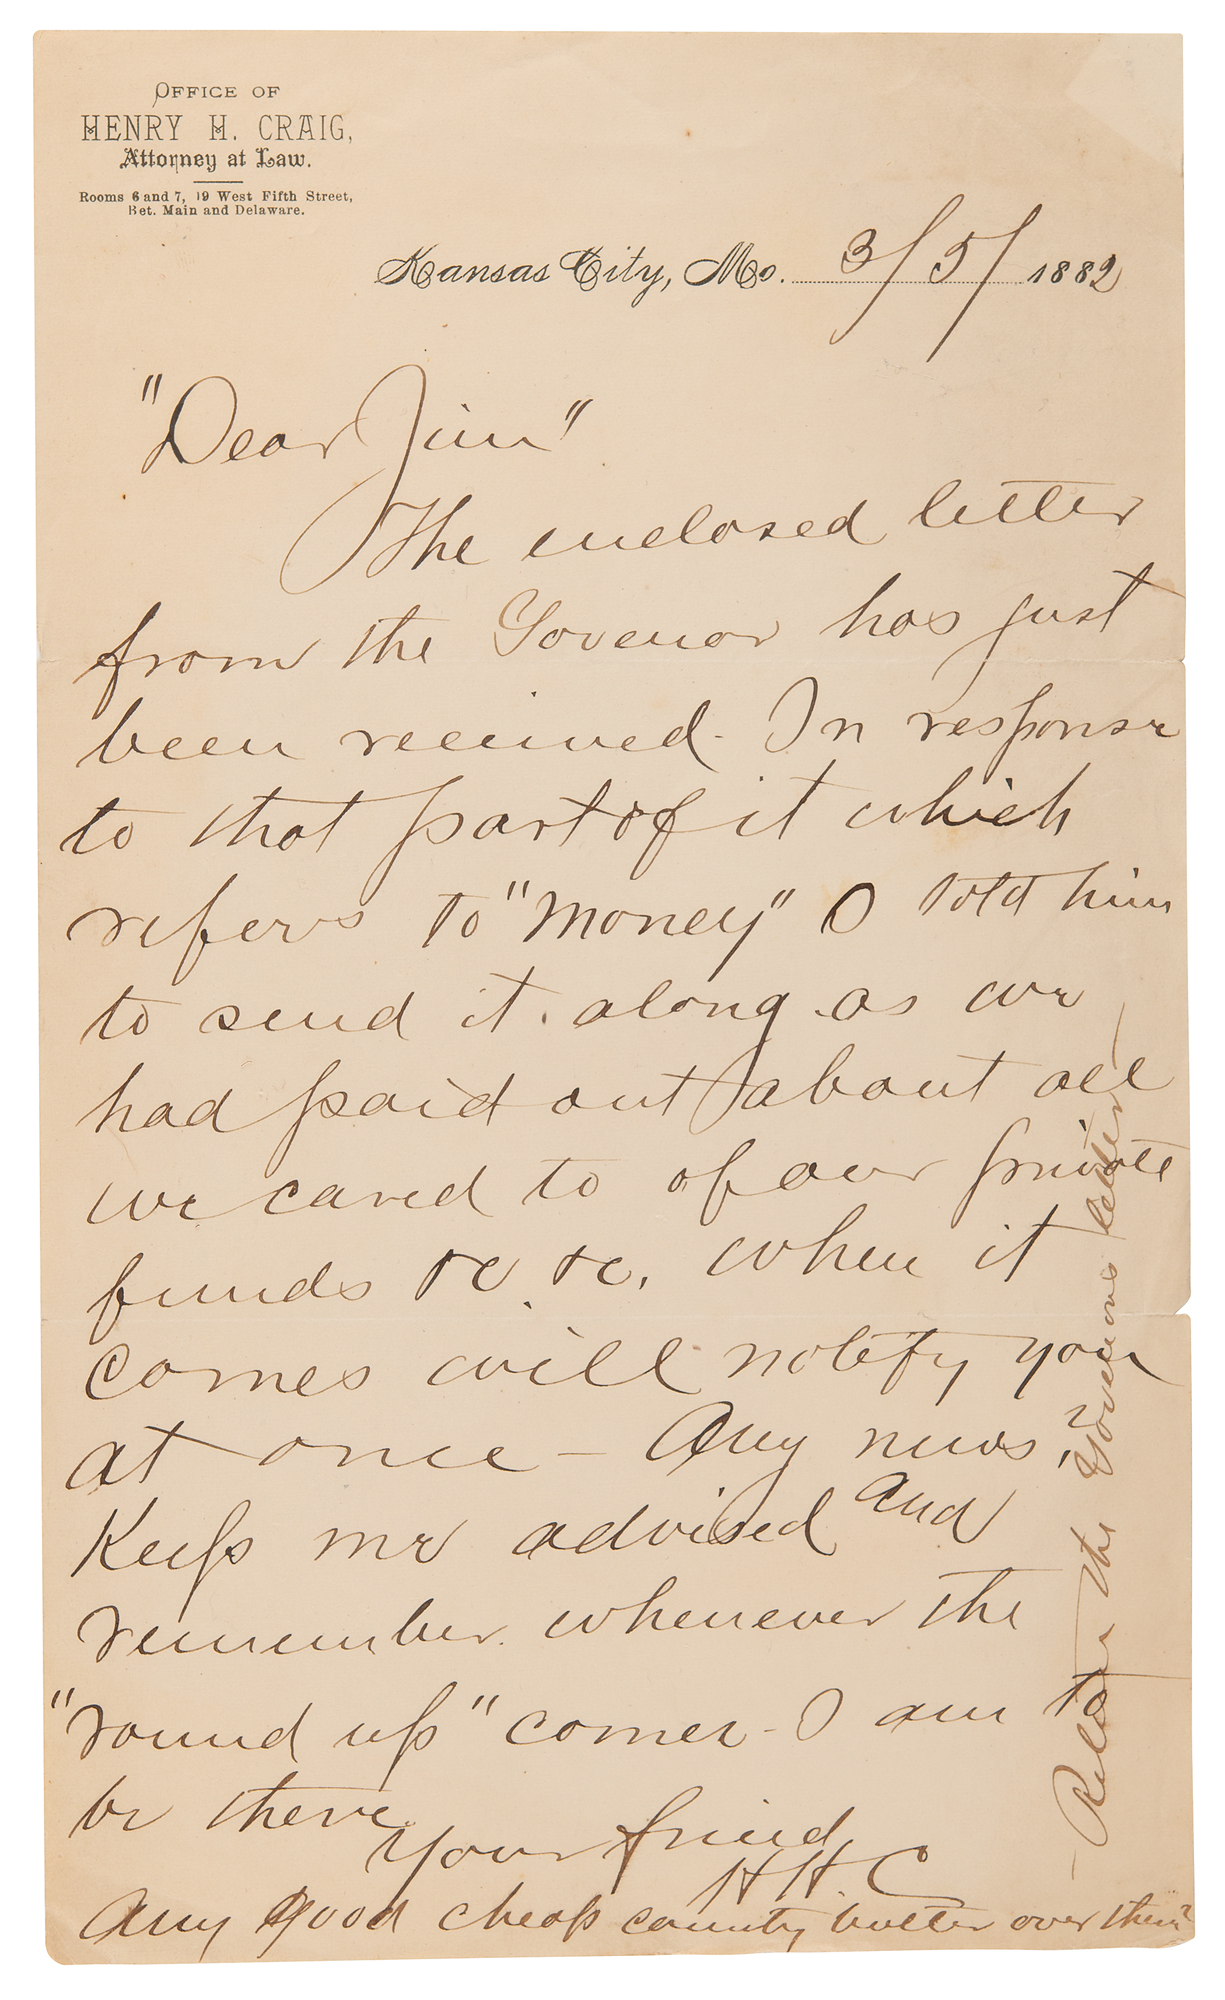 OFFICE OF
HENRY H. CRAIG,
Attorney at Law.
Rooms 6 and 7, 19 West Fifth Street,
Bet. Main and Delaware.
Kansas City, Mo. 3/5/ 1882
"Dear Jim"
The enclosed letter
from the Govenor has just
been received. In response
to that part of it which
refers to "money" I told him
to send it along as we
had paid out about all
we cared to of our private
funds &c. &c. when it
comes will notify you
at once – Any news?
Keep me advised and
remember whenever the
"round up" comes I am to
be there.
Your friend
H H C
Any good cheap country butter over there?
– Return the Govenors letter –